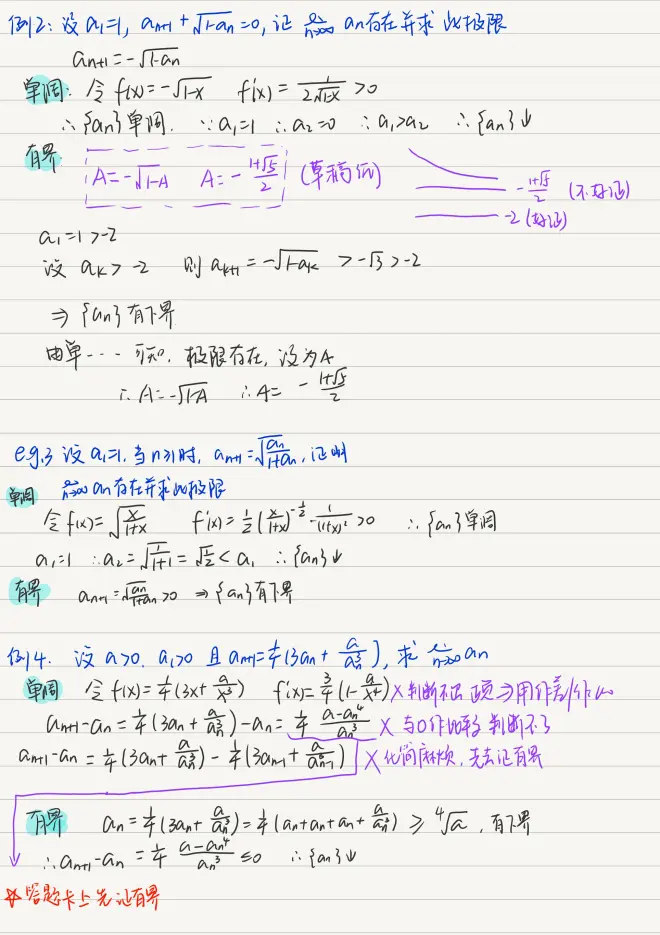 例2: 设 a₁=1, aₙ₊₁+√(1-aₙ)=0, 证 lim n→∞ aₙ存在并求此极限
aₙ₊₁=-√(1-aₙ)
单调: 令 f(x)=-√(1-x) f'(x)=1/(2√(1-x))>0
∴{aₙ}单调. ∵a₁=1 ∴a₂=0 ∴a₁>a₂ ∴{aₙ}↓
有界 A=-√(1-A) A=-(1+√5)/2 (草稿纸) -(1+√5)/2 (不好证)
-2 (好证)
a₁=1>-2
设 aₖ>-2 则 aₖ₊₁=-√(1-aₖ) >-√3>-2
⇒{aₙ}有下界
由单····可知, 极限存在, 设为A
∴A=-√(1-A) ∴A= -(1+√5)/2
e.g.3 设 a₁=1, 当n≥1时, aₙ₊₁=√(aₙ/(1+aₙ)), 证明
lim n→∞ aₙ存在并求此极限
单调 令f(x)=√(x/(1+x)) f'(x)=1/2(x/(1+x))^(-1/2)·1/(1+x)²>0 ∴{aₙ}单调
a₁=1 ∴a₂=√(1/(1+1))=√(1/2)<a₁ ∴{aₙ}↓
有界 aₙ₊₁=√(aₙ/(1+aₙ))>0 ⇒{aₙ}有下界
例4. 设 a>0, a₁>0 且 aₙ₊₁=1/4(3aₙ+a/aₙ³), 求 lim n→∞ aₙ
单调 令f(x)=1/4(3x+a/x³) f'(x)=3/4(1-a/x⁴) ×判断不出 正负⇒用作差/作比
aₙ₊₁-aₙ=1/4(3aₙ+a/aₙ³)-aₙ=1/4 (a-aₙ⁴)/aₙ³ × 与0作比较 判断不了
aₙ₊₁-aₙ=1/4(3aₙ+a/aₙ³)-1/4(3aₙ₋₁+a/aₙ₋₁³) ×化简麻烦, 先去证有界
有界 aₙ=1/4(3aₙ+a/aₙ³)=1/4(aₙ+aₙ+aₙ+a/aₙ³)≥⁴√a, 有下界
∴aₙ₊₁-aₙ=1/4 (a-aₙ⁴)/aₙ³≤0 ∴{aₙ}↓
☆答题卡上先证有界